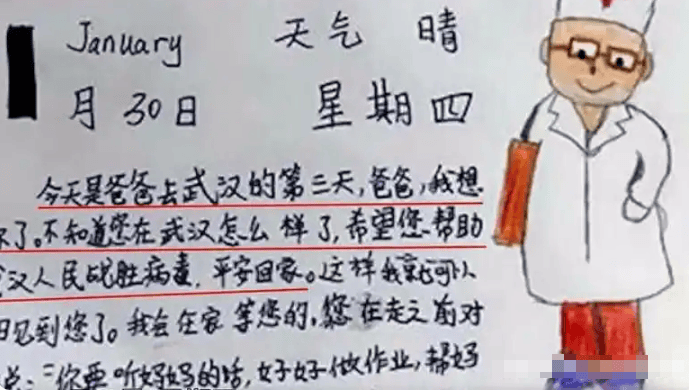 January 天气 晴
月 30日 星期四
今天是爸爸去武汉的第三天,爸爸,我想
你了。不知道您在武汉怎么样了,希望您帮助
汉人民战胜病毒,平安回家。这样我就可以
见到您了。我会在家等您的,您在走之前对
说:“你要听妈妈的话,好好做作业,帮妈